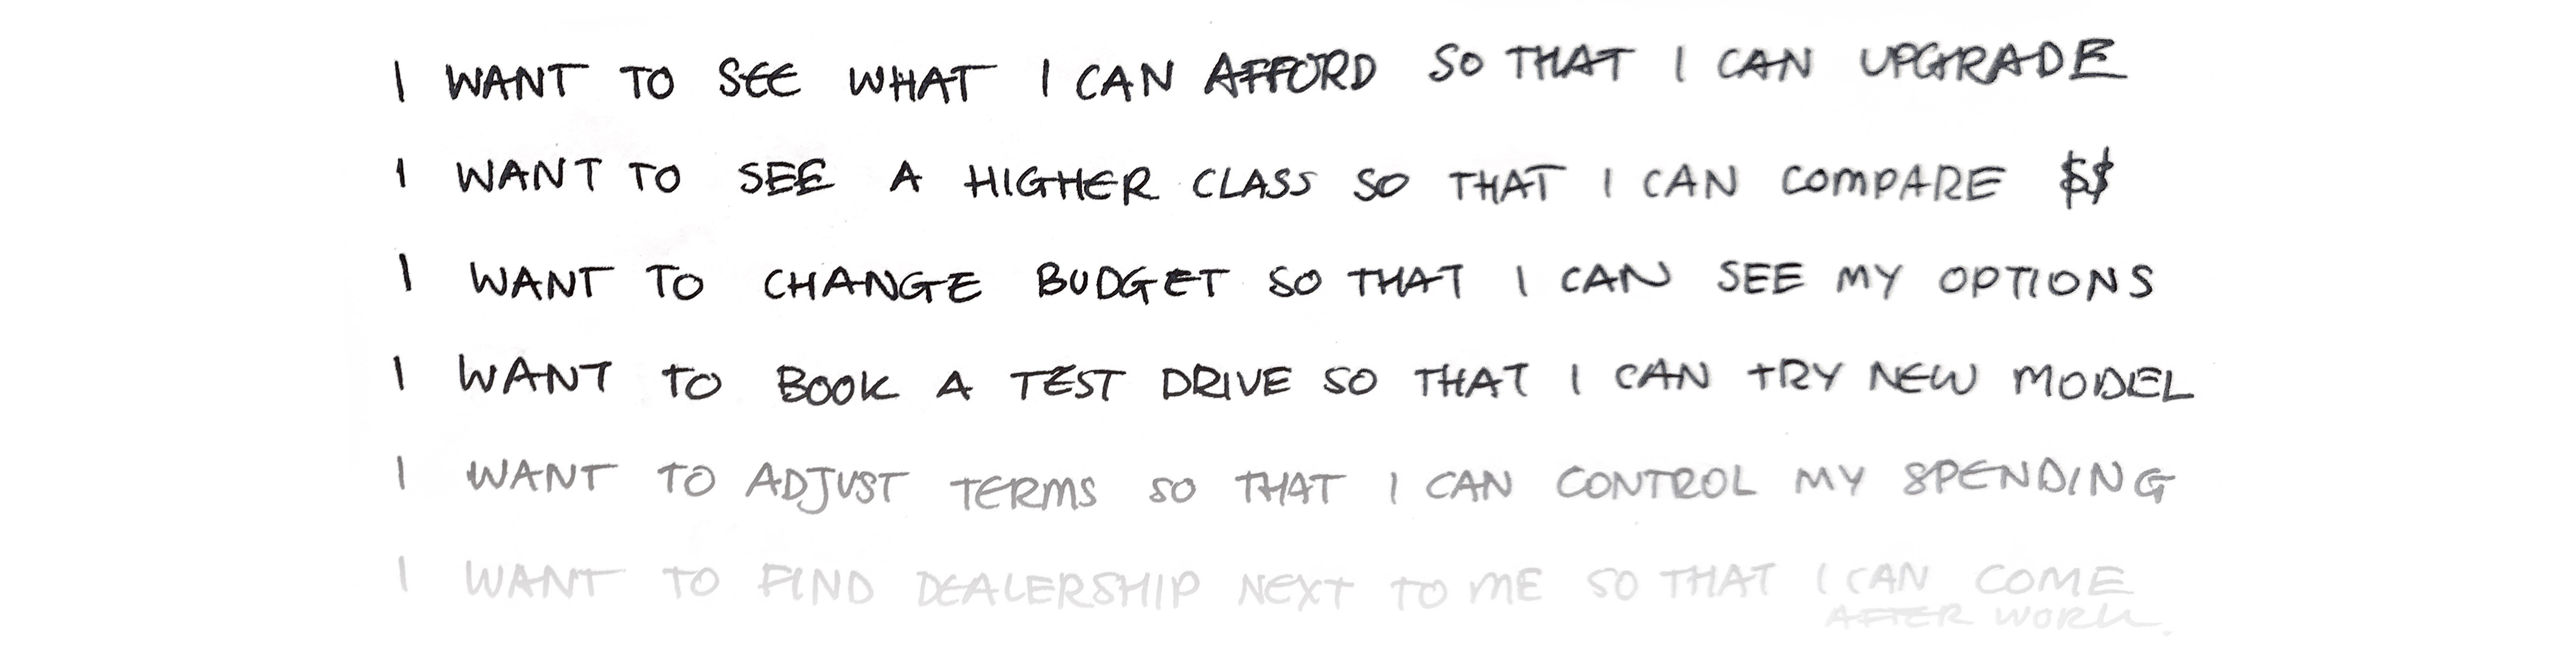 I WANT TO SEE WHAT I CAN AFFORD SO THAT I CAN UPGRADE
I WANT TO SEE A HIGHER CLASS SO THAT I CAN COMPARE $$
I WANT TO CHANGE BUDGET SO THAT I CAN SEE MY OPTIONS
I WANT TO BOOK A TEST DRIVE SO THAT I CAN TRY NEW MODEL
I WANT TO ADJUST TERMS SO THAT I CAN CONTROL MY SPENDING
I WANT TO FIND DEALERSHIP NEXT TO ME SO THAT I CAN COME
AFTER WORK.